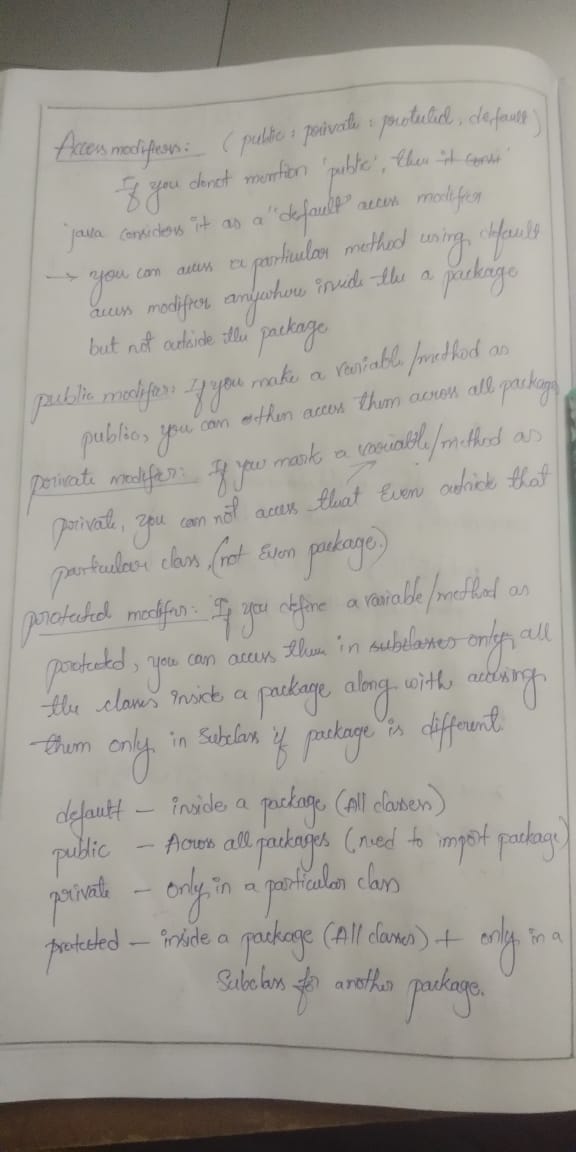 Access modifiers: (public, private, protected, default)
If you donot mention 'public', then it consi
java considers it as a "default" access modifier
→ you can access a particular method using default
access modifier anywhere inside the a package
but not outside the package
public modifier: If you make a variable/method as
public, you can then access them across all package
private modifier: If you mark a variable/method as
private, you can not access that Even outside that
particular class. (not Even package.)
protected modifier: If you define a variable/method as
protected, you can access them in subclasses only, all
the classes inside a package along with accessing
them only in Subclass if package is different.
default - inside a package (All classes)
public - Across all packages (need to import package)
private - only in a particular class
protected - inside a package (All classes) + only in a
Subclass for another package.